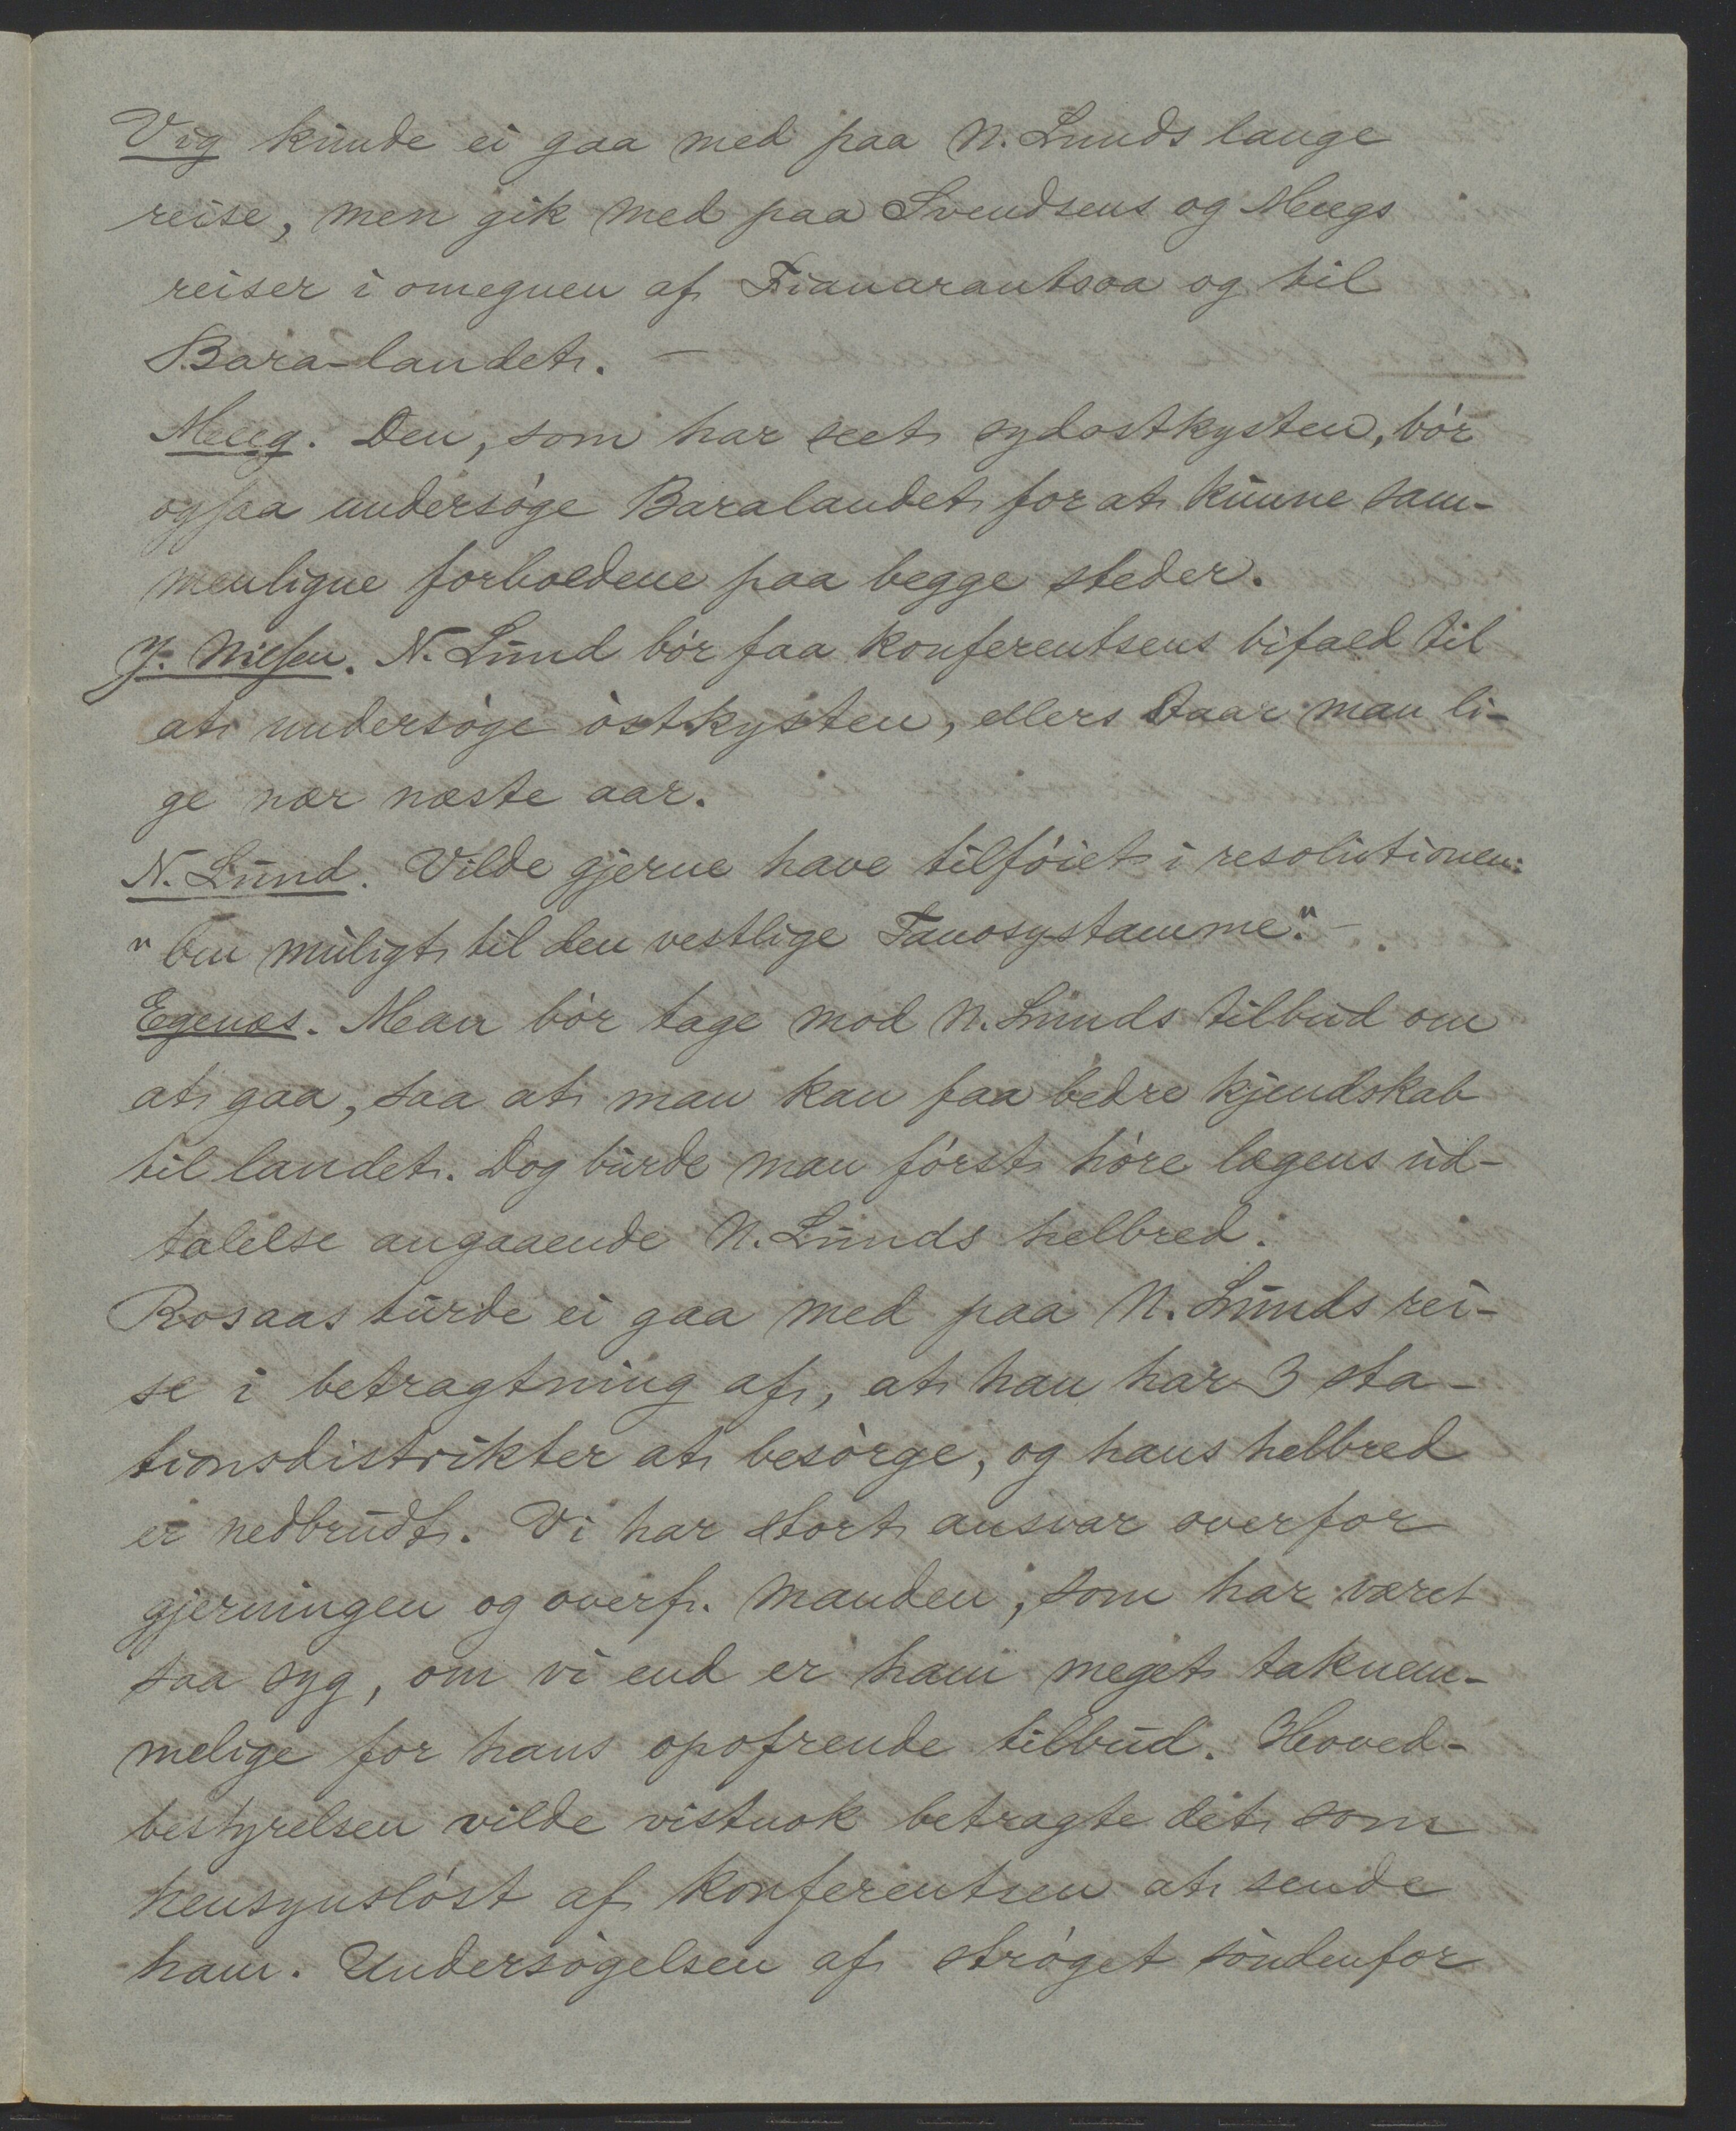 Vig kunde ei gaa med paa N. Lunds lange
reise, men gik med paa Svendsens og Meegs
reiser i omegnen af Fianarantsoa og til
Bara-landet. –
Meeg. Den, som har seet sydostkysten, bör
ogsaa undersöge Baralandet for at kunne sam-
menligne forholdene paa begge steder.
J. Nilsen. N. Lund bör faa konferentsens bifald til
at undersöge östkysten, ellers staar man li-
ge nær næste aar.
N. Lund. Vilde gjerne have tilföiet i resolutionen:
"om muligt til den vestlige Tanosystamme". –
Egenæs. Man bör tage mod N. Lunds tilbud om
at gaa, saa at man kan faa bedre kjendskab
til landet. Dog burde man först höre lægens ud-
talelse angaaende N. Lunds helbred.
Rosaas turde ei gaa med paa N. Lunds rei-
se i betragtning af, at han har 3 sta-
tionsdistrikter at besörge, og hans helbred
er nedbrudt. Vi har stort ansvar overfor
gjerningen og overf. manden, som har været
saa syg, om vi end er ham meget taknem-
melige for hans opofrende tilbud. Hoved-
bestyrelsen vilde vistnok betragte det som
hensynslöst af konferentsen at sende
ham. Undersögelsen af ströget söndenfor